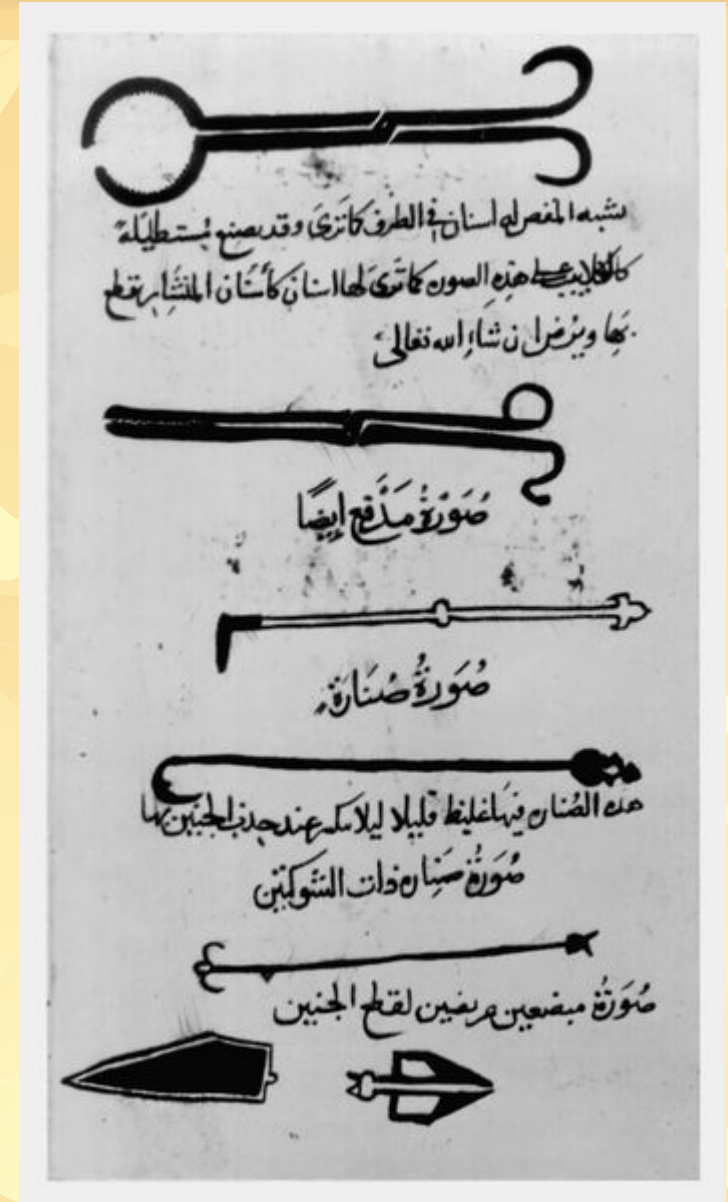 يشبه المقص له اسنان في الطرف كما ترى وقد يصنع مستطيلة
كالكلاليب على هذه الصورة كما ترى لها اسنان كأسنان المنشار يقطع
بها ويرض ان شاء الله تعالى
صُورَةُ مِدْفَع ايضًا
صُورَةُ صنَارَة
هذه الصناره فيها غلظ قليلا ليلا تنكسر عند جذب الجنين بها
صُورَةُ صناره ذات الشوكتين
صُورَةُ مبضعين عريضين لقطع الجنين